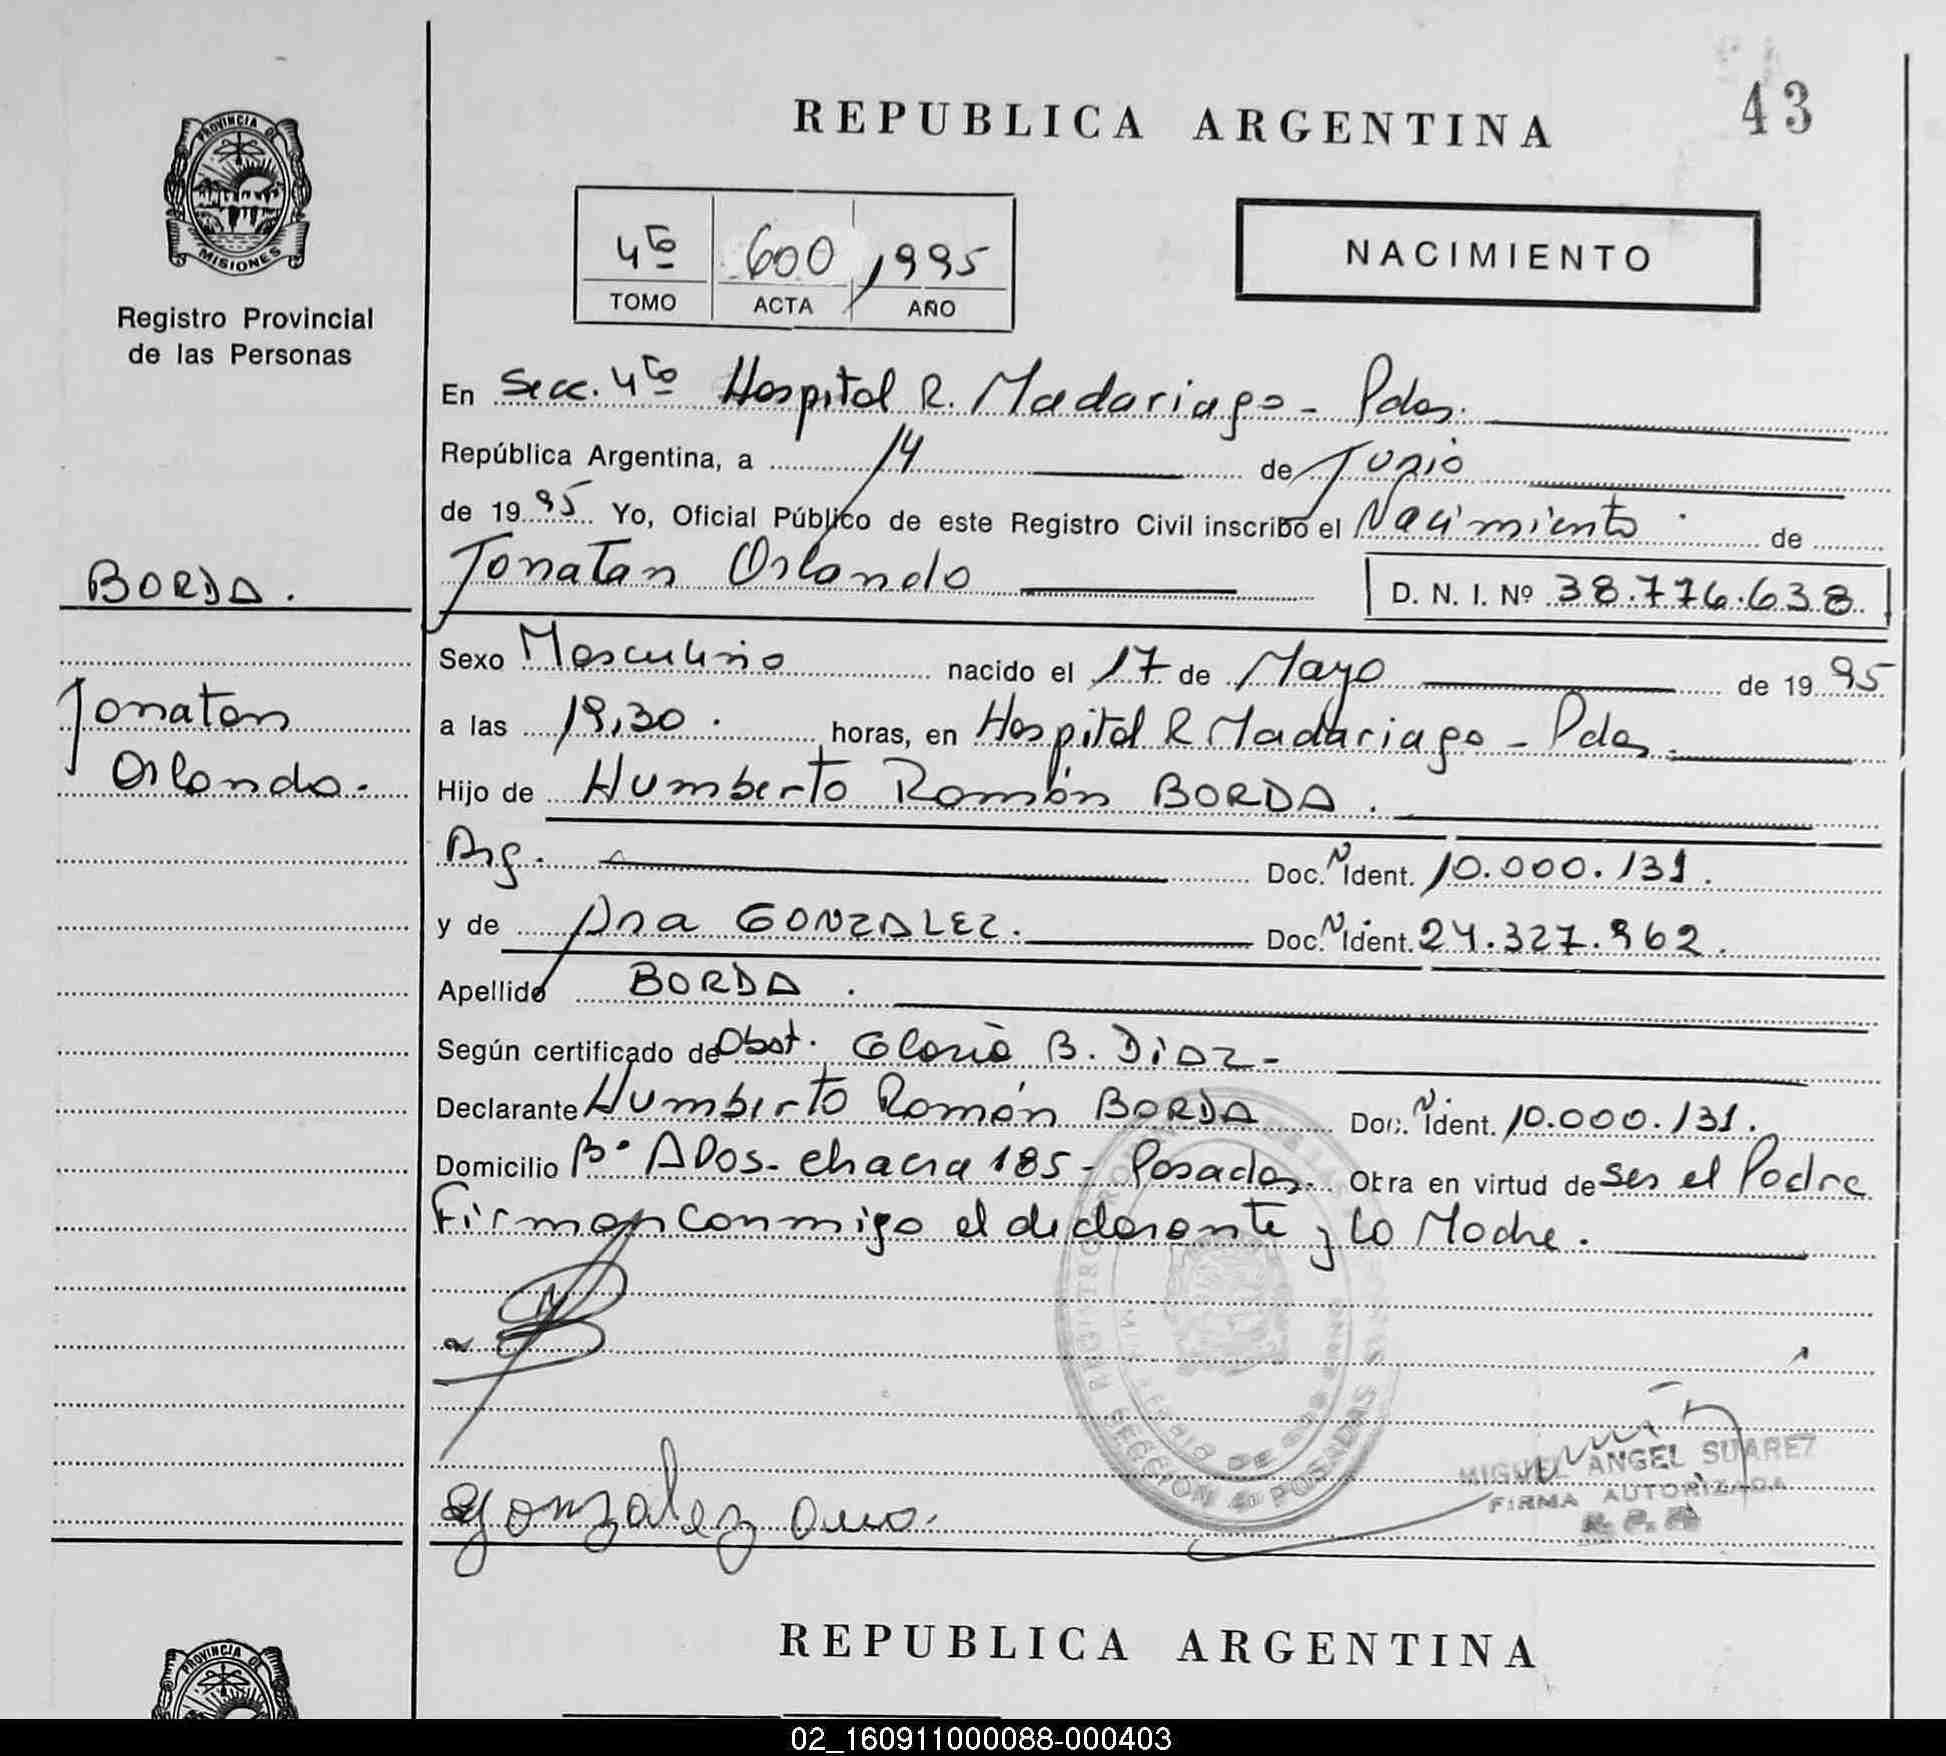 43
REPUBLICA ARGENTINA
PROVINCIA DE
MISIONES
Registro Provincial
de las Personas
4to 600 1995
TOMO ACTA AÑO
NACIMIENTO
En Secc. 4to Hospital R. Madariaga - Pdas.
República Argentina, a 14 de Junio
de 1995 Yo, Oficial Público de este Registro Civil inscribo el Nacimiento de
Jonatan Orlando D. N. I. Nº 38.776.638
BORDA.
Jonatan
Orlando.
Sexo Masculino nacido el 17 de Mayo de 1995
a las 19,30. horas, en Hospital R Madariaga - Pdas.
Hijo de Humberto Ramón BORDA.
Arg. Doc. N Ident. 10.000.131.
y de Ana GONZALEZ. Doc. N Ident. 24.327.962.
Apellido BORDA.
Según certificado de Obst. Gloria B. Diaz -
Declarante Humberto Ramón BORDA Doc. N Ident. 10.000.131.
Domicilio Bº A Dos - chacra 185 - Posadas. Obra en virtud de ser el Padre
Firman conmigo el declarante y la Madre.
SECCION 4a POSADAS
MIGUEL ANGEL SUAREZ
FIRMA AUTORIZADA
Gonzalez Ana.
REPUBLICA ARGENTINA
PROVINCIA DE
02_160911000088-000403